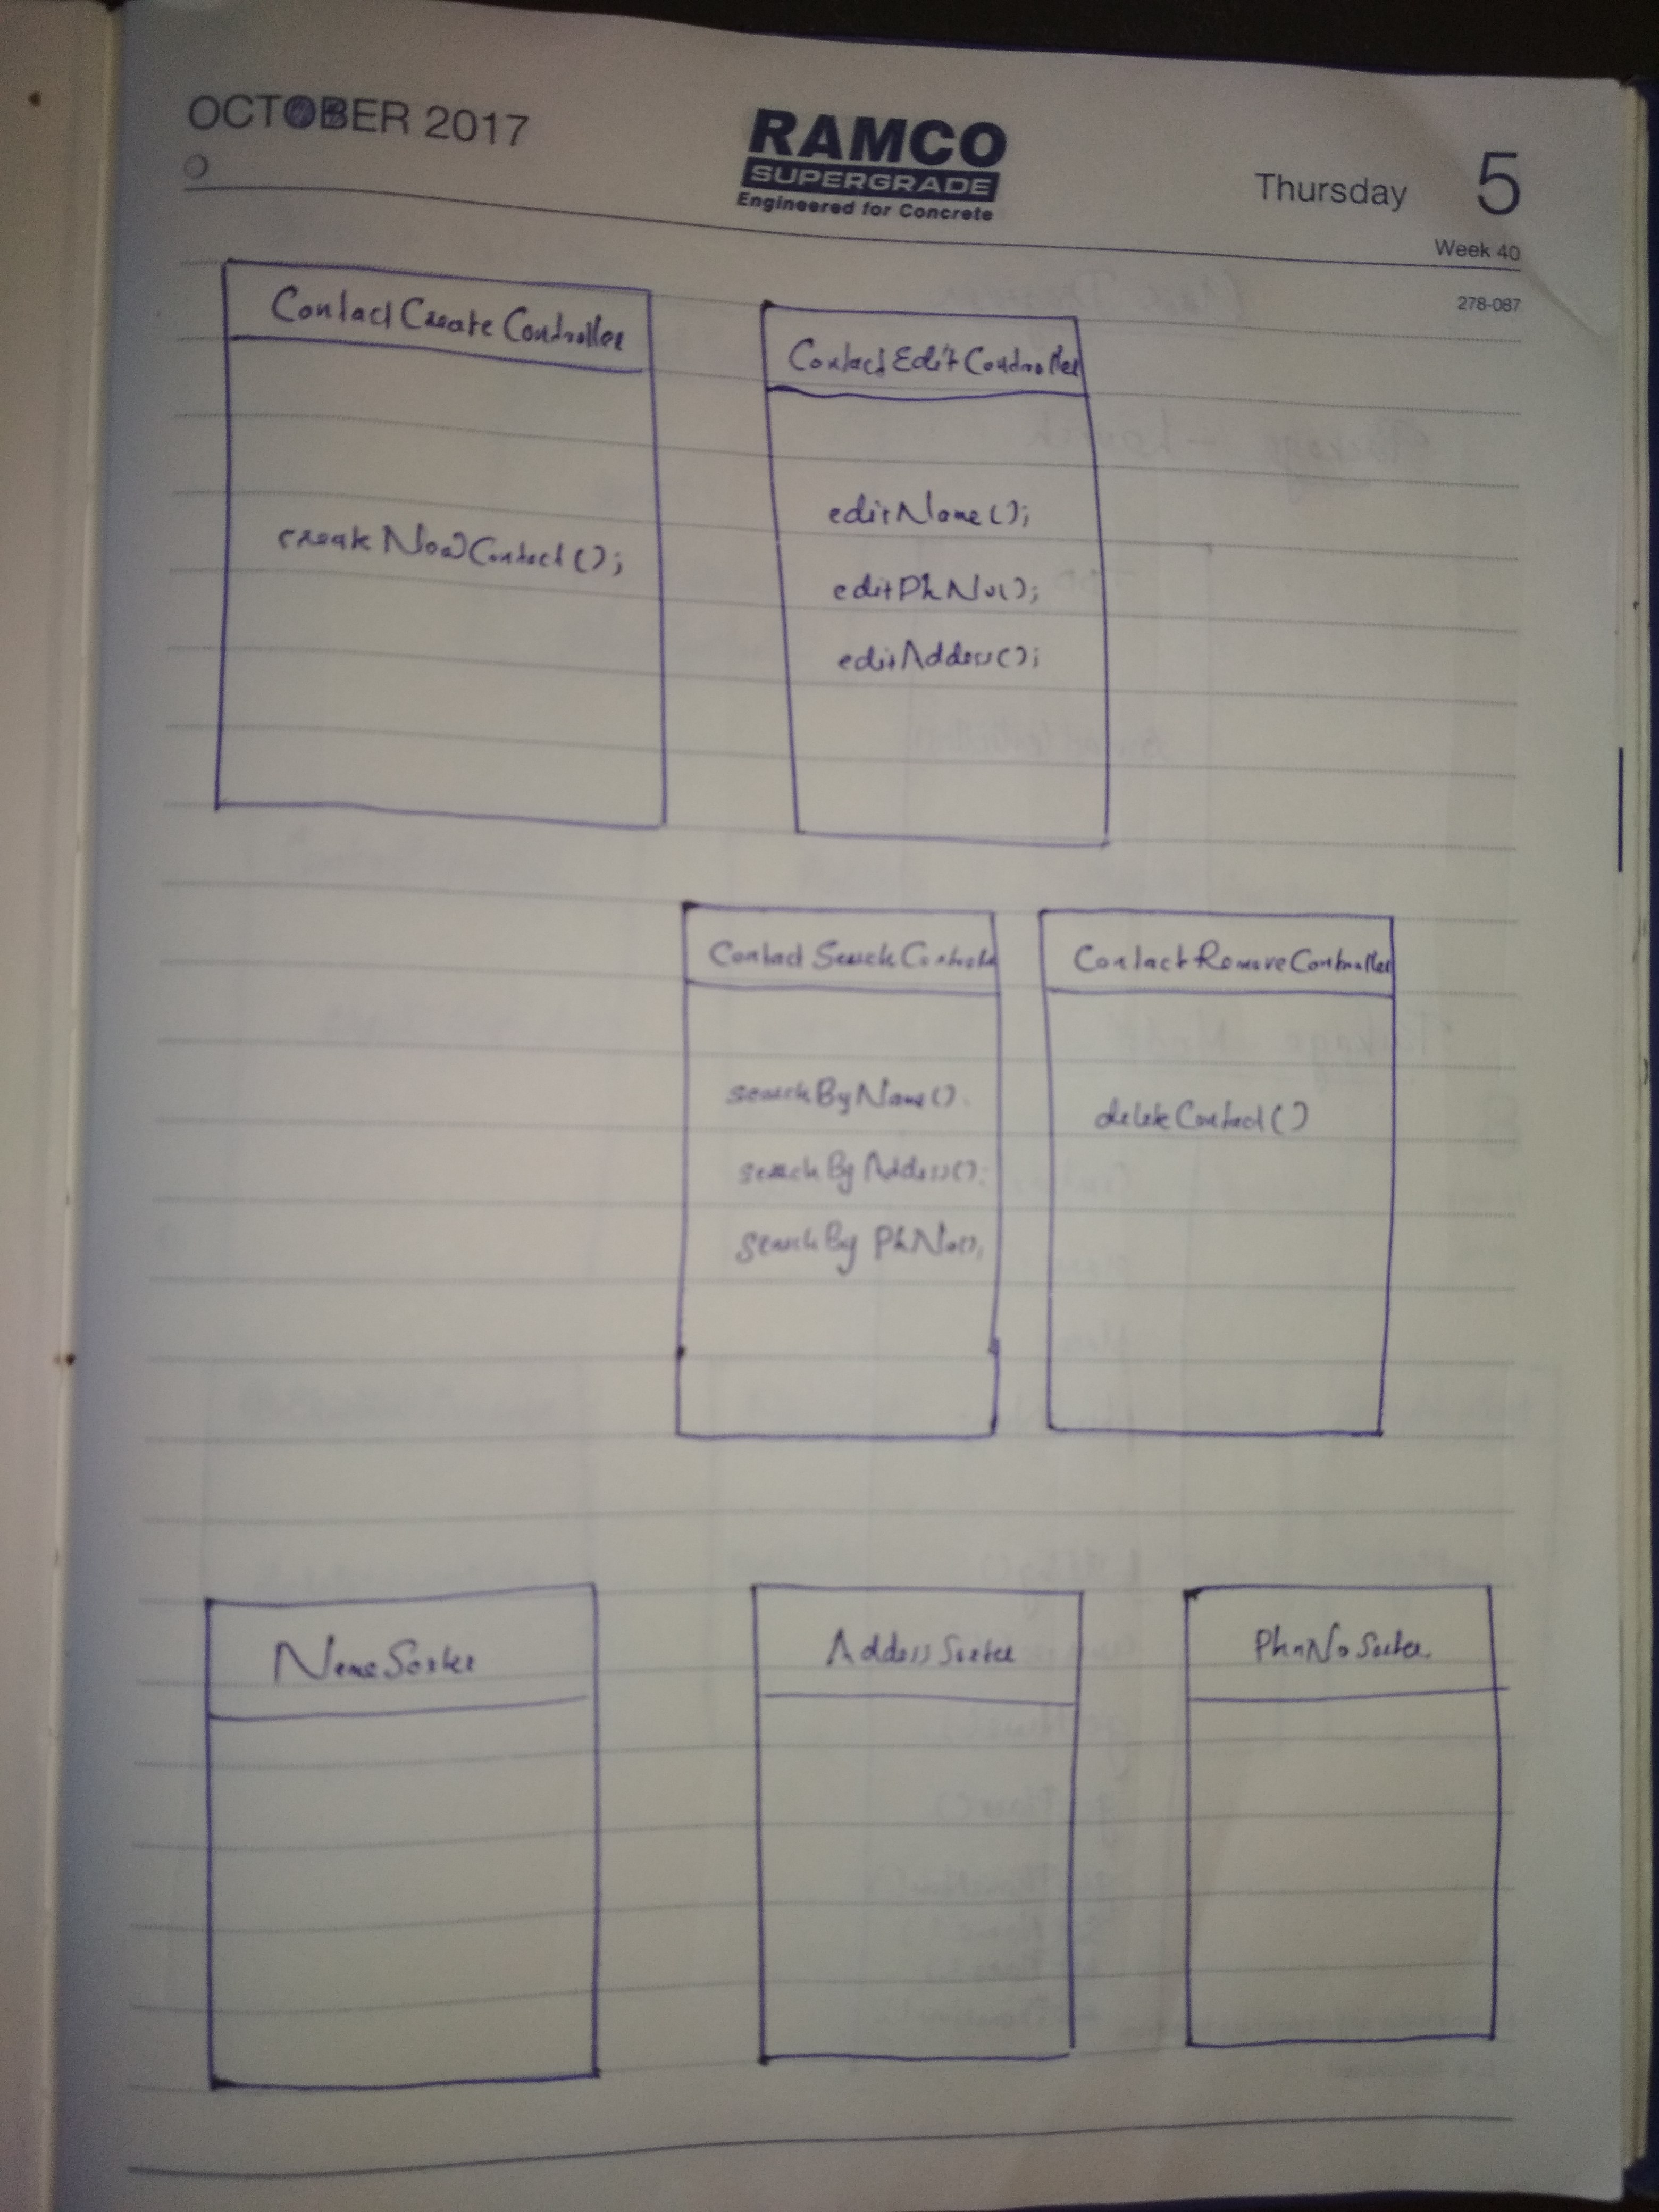 OCTOBER 2017
RAMCO
SUPERGRADE
Engineered for Concrete
Thursday 5
Week 40
278-087
ContactCreateController
createNewContact();
ContactEditController
editName();
editPhNo();
editAddress();
ContactSearchController
searchByName()
searchByAddress();
searchByPhNo();
ContactRemoveController
deleteContact()
NameSorter
AddressSorter
PhnNoSorter